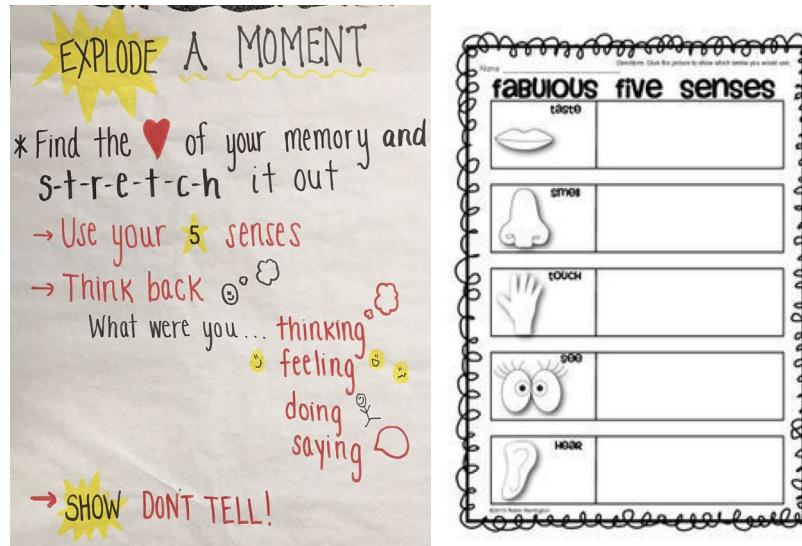 EXPLODE A MOMENT
* Find the of your memory and
s-t-r-e-t-c-h it out
→ Use your 5 senses
→ Think back
What were you... thinking
feeling
doing
saying
→ SHOW DON'T TELL!
Name
Directions: Glue the picture to show which sense you would use.
fabulous five senses
taste
smell
touch
see
Hear